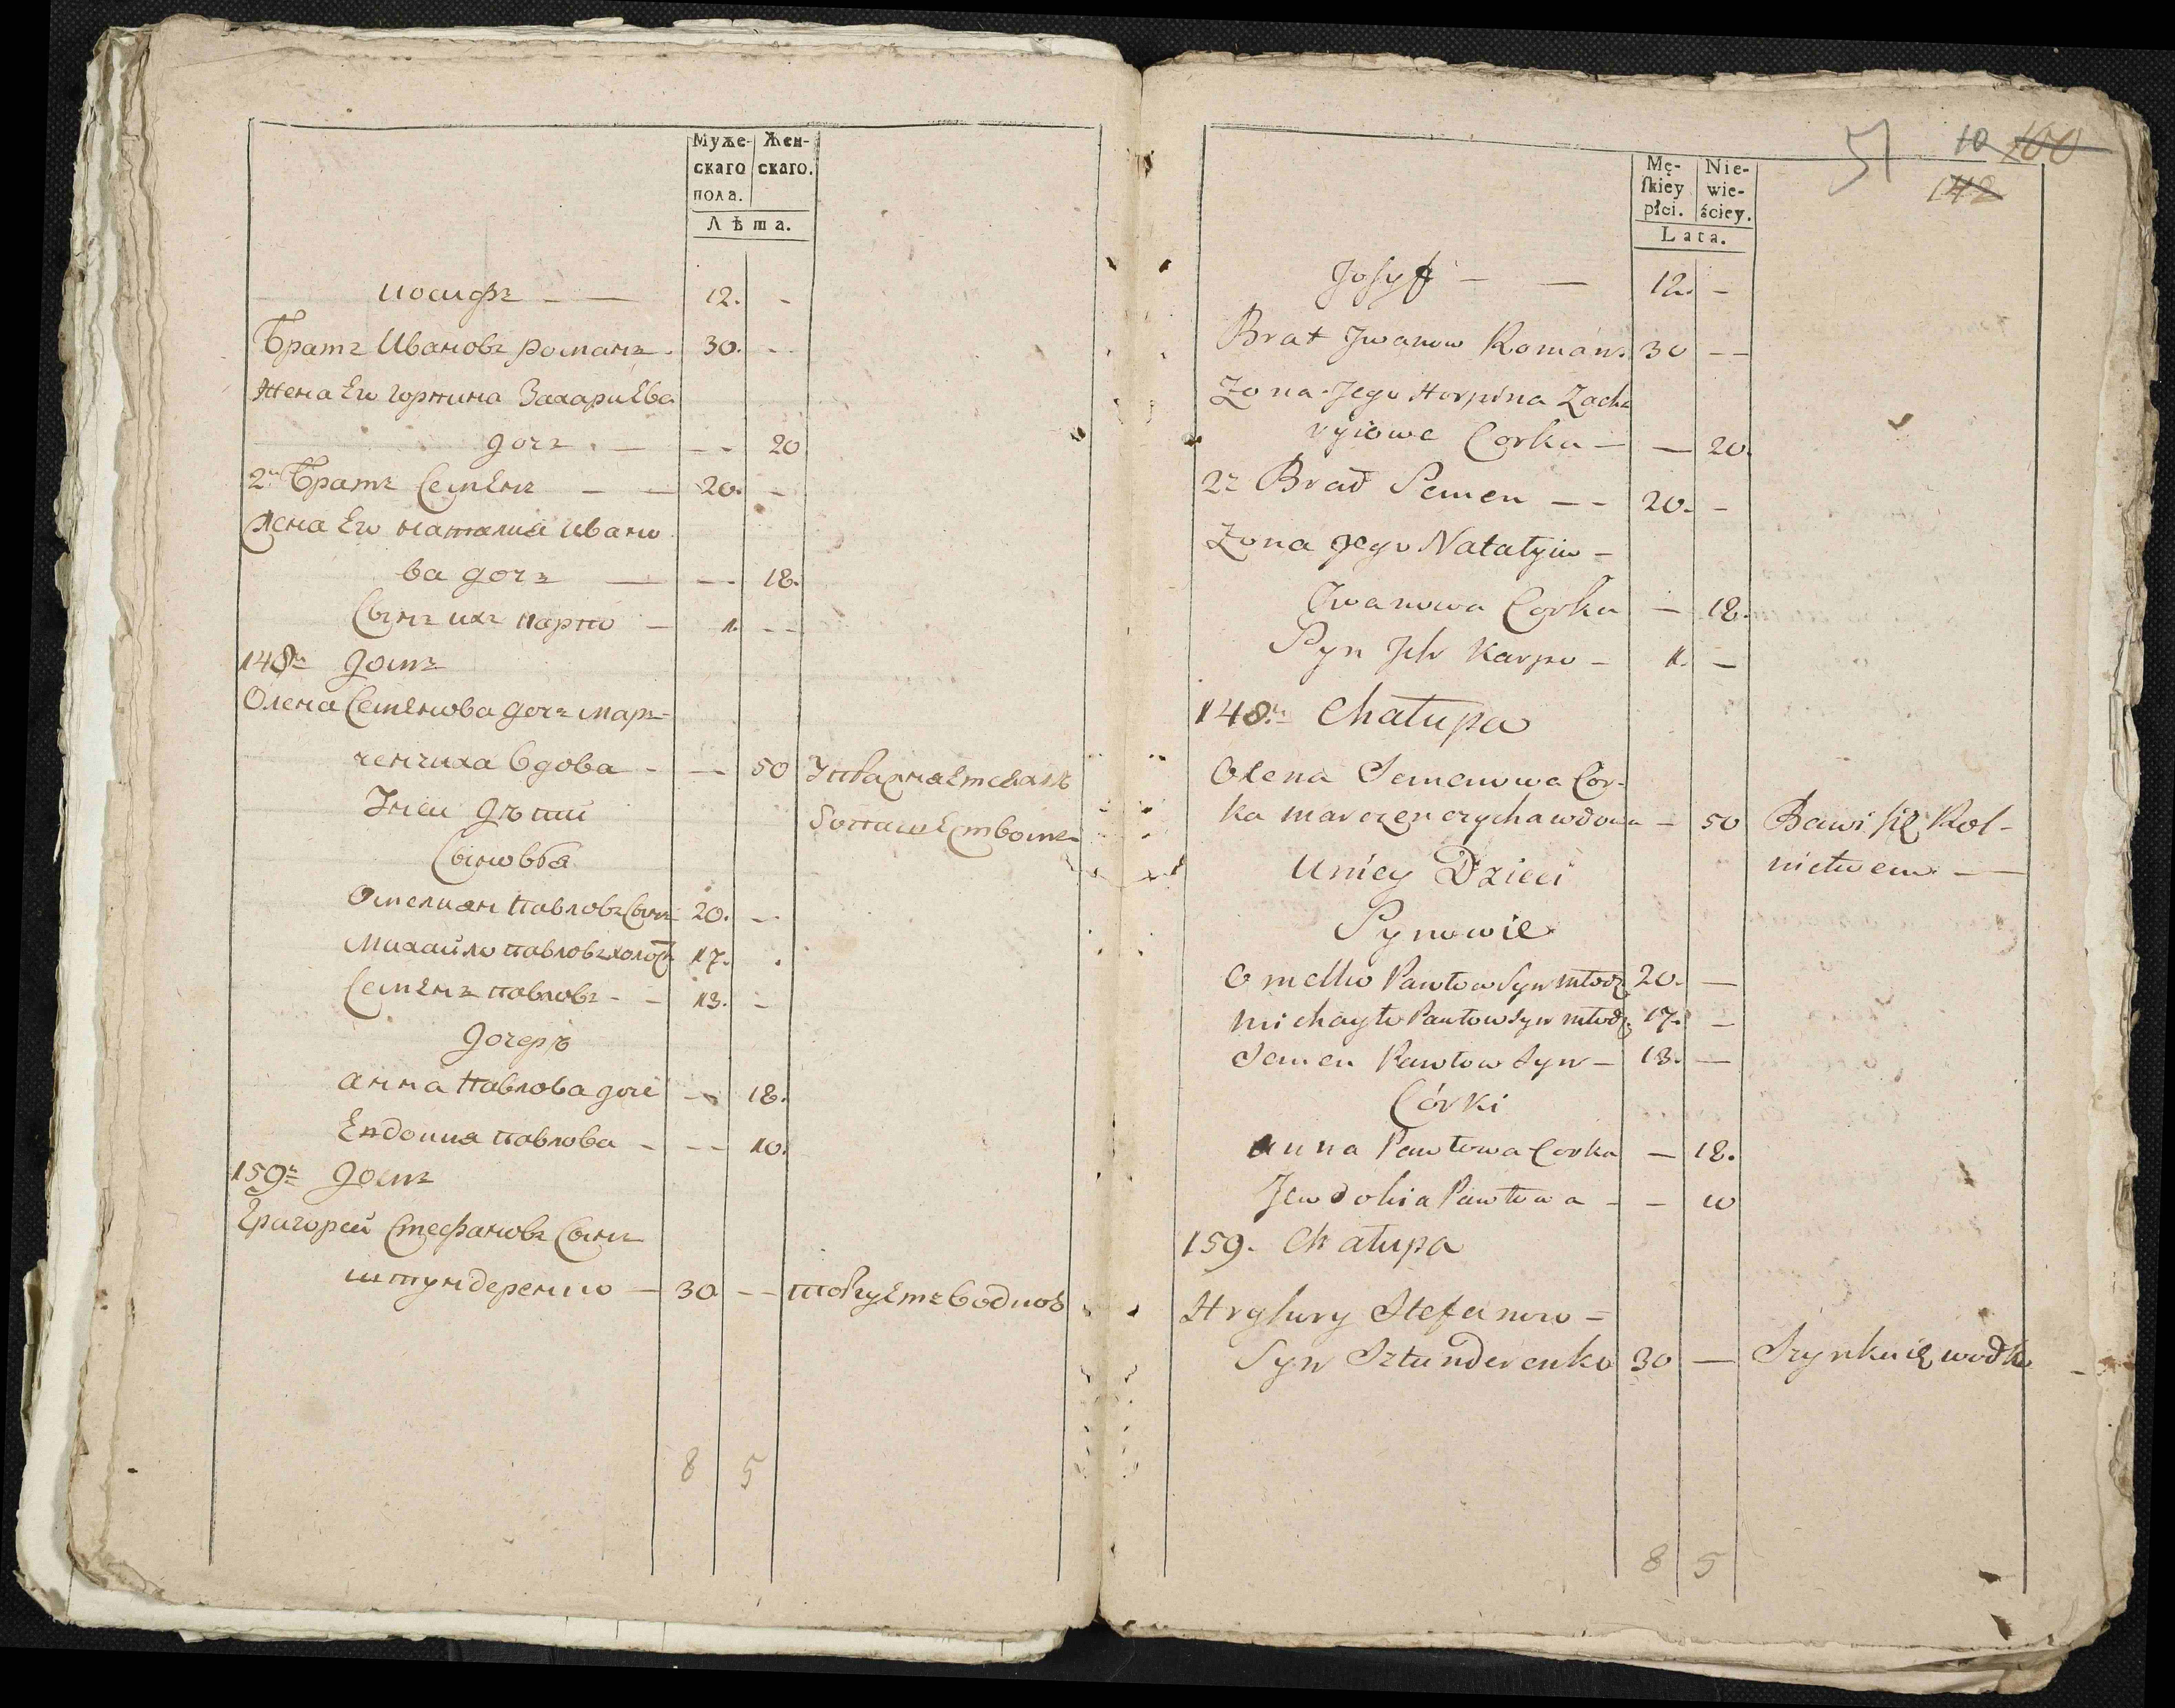 Муже- Жен-
скаго скаго.
пола.
Лѣта.
Иосифъ — — 12. -
Братъ Ивановъ романъ. 30. -
Жена Его горпина Захариева
дочъ — -- 20
2й Братъ Семенъ — — 20. -
Жена Его наталия ивано
ва дочъ — -- 18.
Сынъ ихъ карпо — 1. --
148й домъ
Олена Семенова дочъ мар-
ченчиха вдова - — 50
У неи дѣти
Синовья
Омелиан павловъ Сынъ 20. -
Михайло павловъ холос 17. .
Семенъ павловъ - - 13. -
дочерѣ
анна павлова доч — 18.
Евдокия павлова - -- 10.
159й домъ
Григорей Стефановъ Сынъ
штундеренко — 30 --
8 5
51 10 100
142
Mę- Nie-
skiey wie-
płci. ściey.
Lata.
Josyf — — 12. -
Brat Jwanow Roman. 30 --
Zona Jego Horpina Zach
ryiowa Corka — — 20.
2й Brat Semen -- 20. -
Zona Jego Natalyia -
Jwanowa Corka — 18.
Syn Jch Karpo - 1. —
148й Chałupa
Olena Semenowa Cor-
ka marczenczycha wdowa — 50 Bawi się Rol-
nictwem —
U niey Dzieci
Synowie
Omelko Pawłow Syn młodz 20. —
Michayło Pawłow Syn młodz. 17. —
Semen Pawłow Syn — 13. —
Córki
Anna Pawłowa Corka — 18.
Jewdokia Pawłowa - — 10
159. Chałupa
Hryhory Stefanow =
Syn Sztunderenko 30 — Szynkuię wodk
8 5